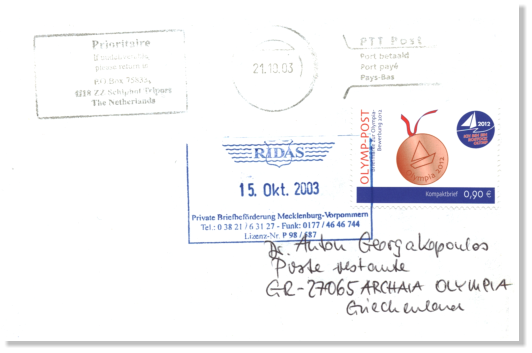 Prioritaire
If undeliverable,
please return to
P.O. Box
1118 ZZ Schiphol Tripors
The Netherlands
21.10.03
PTT Post
Port betaald
Port payé
Pays-Bas
OLYMP-POST
Bewerbung 2012
2012
Olympia 2012
Kompaktbrief 0,90 €
RIDAS
15. Okt. 2003
Private Briefbeförderung Mecklenburg-Vorpommern
Tel.: 0 38 21 / 6 31 27 - Funk: 0177 / 46 46 744
Lizenz-Nr. P 98 / 687
Dr. Anton Georgakopoulos
Poste restante
GR-27065 ARCHAIA OLYMPIA
Griechenland